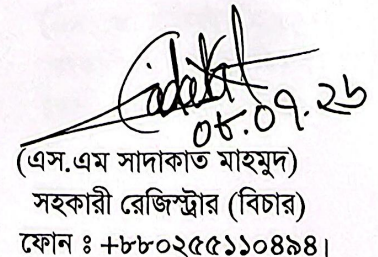 ০৮.০৭.২৬
(এস.এম সাদাকাত মাহমুদ)
সহকারী রেজিস্ট্রার (বিচার)
ফোন ঃ +৮৮০২৫৫১১০৪৯৪।